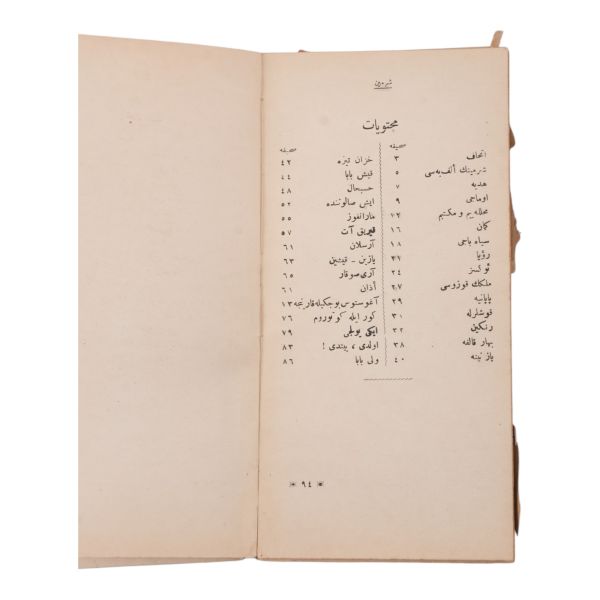 شرمين
محتويات
صحيفه
اتحاف ٣
شرمينك ألف به سى ٥
هديه ٧
اوماجى ٩
محله يم و مكتبم ١٢
كمان ١٦
سياه باجى ١٨
رؤيا
ئوكسز ٢٤
ملكك قوزوسى ٢٧
پاپاتيه ٢٩
قوشلرله ٣١
رنكين ٣٢
بهار قالفه ٣٨
ياز نينه ٤٠
صحيفه
خزان تيزه ٤٢
قيش بابا ٤٤
حسبحال ٤٨
ايش صالوننده ٥٢
مارانغوز ٥٥
قيريق آت ٥٧
آرسلان ٦١
يازين - قيشين ٦٣
آرى صوقار ٦٥
أذان ٦١
آغوستوس بوجكيله قارينجه ١٣
كور ايله كوتوروم ٧٦
ايكى يولجى ٧٩
اولدى ، بيتدى ! ٨٣
ولى بابا ٨٦
٩٤